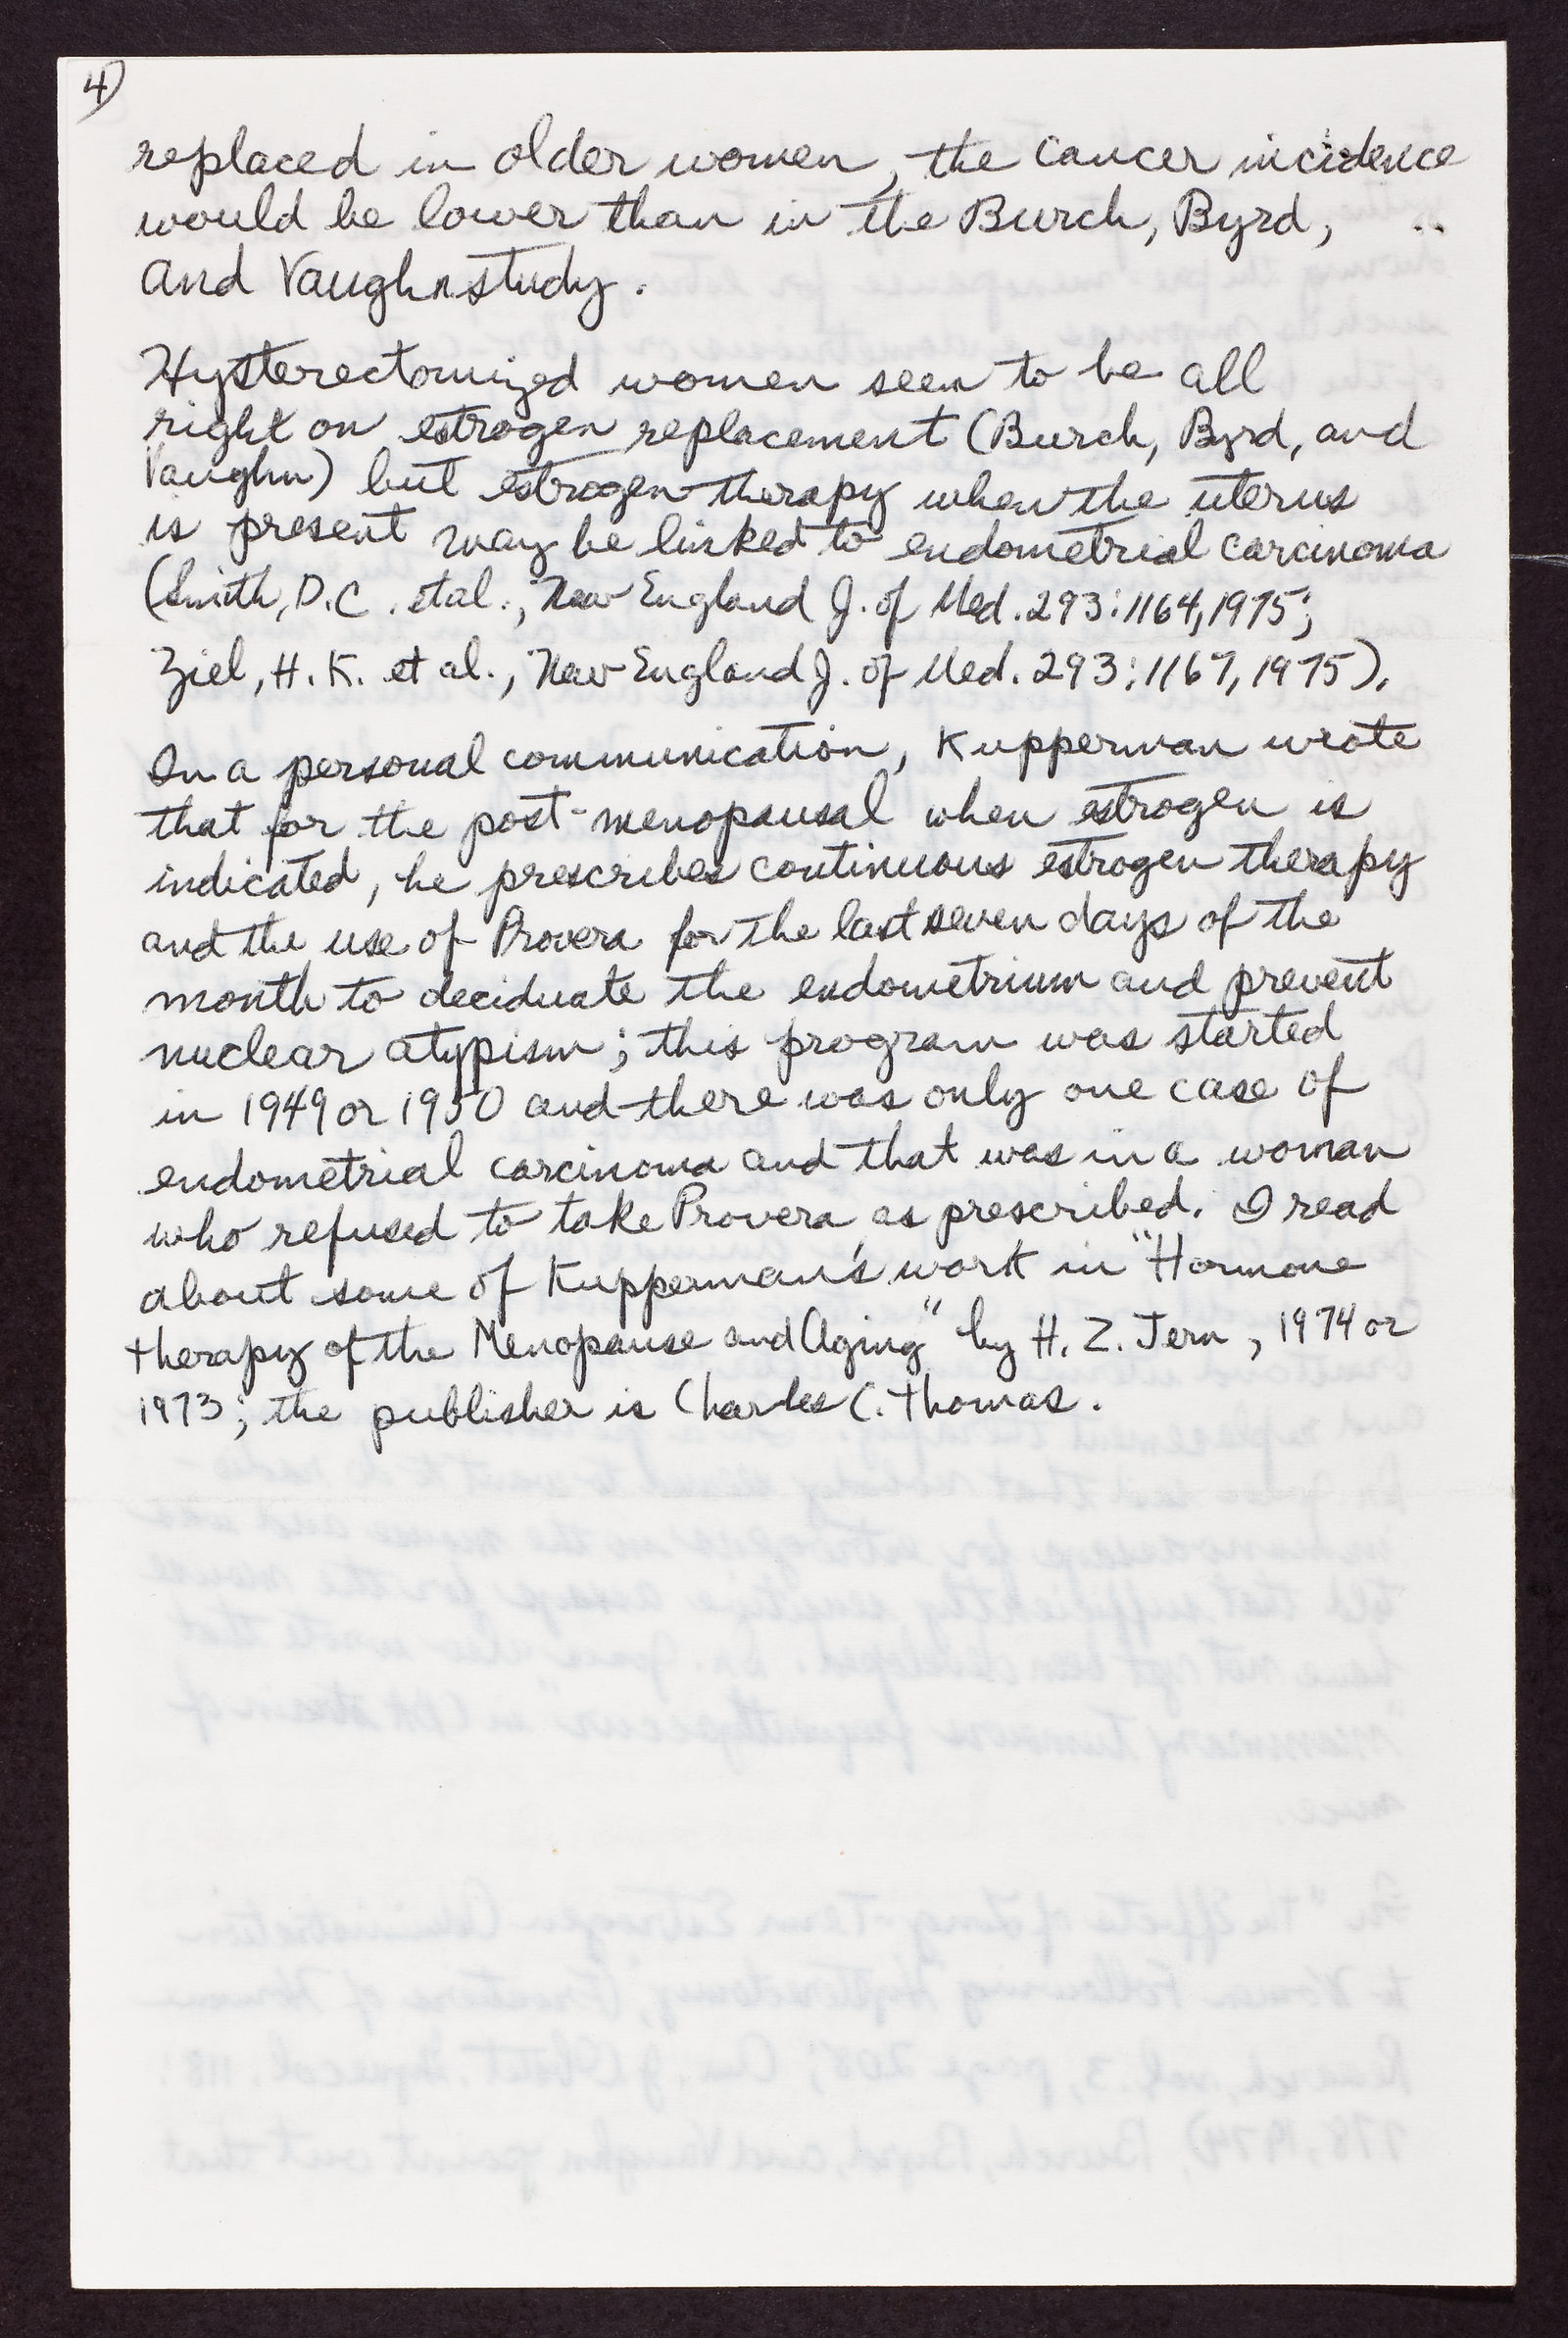 4)
replaced in older women, the cancer incidence
would be lower than in the Burch, Byrd,
and Vaughn study.
Hysterectomized women seem to be all
right on estrogen replacement (Burch, Byrd, and
Vaughn) but estrogen therapy when the uterus
is present may be linked to endometrial carcinoma
(Smith, D.C. et al., New England J. of Med. 293:1164, 1975;
Ziel, H. K. et al., New England J. of Med. 293:1167, 1975).
In a personal communication, Kupperman wrote
that for the post-menopausal when estrogen is
indicated, he prescribes continuous estrogen therapy
and the use of Provera for the last seven days of the
month to deciduate the endometrium and prevent
nuclear atypism; this program was started
in 1949 or 1950 and there was only one case of
endometrial carcinoma and that was in a woman
who refused to take Provera as prescribed. I read
about some of Kupperman's work in "Hormone
therapy of the Menopause and Aging" by H. Z. Jern, 1974 or
1973; the publisher is Charles C. Thomas.